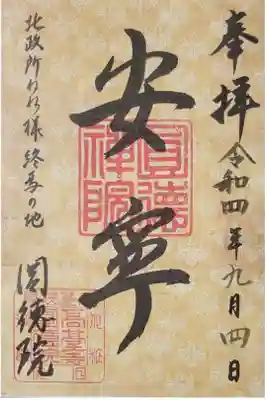 奉拝 令和四年九月四日
安寧
圓德
禪院
北政所ねね様 終焉の地
圓徳院
高臺寺